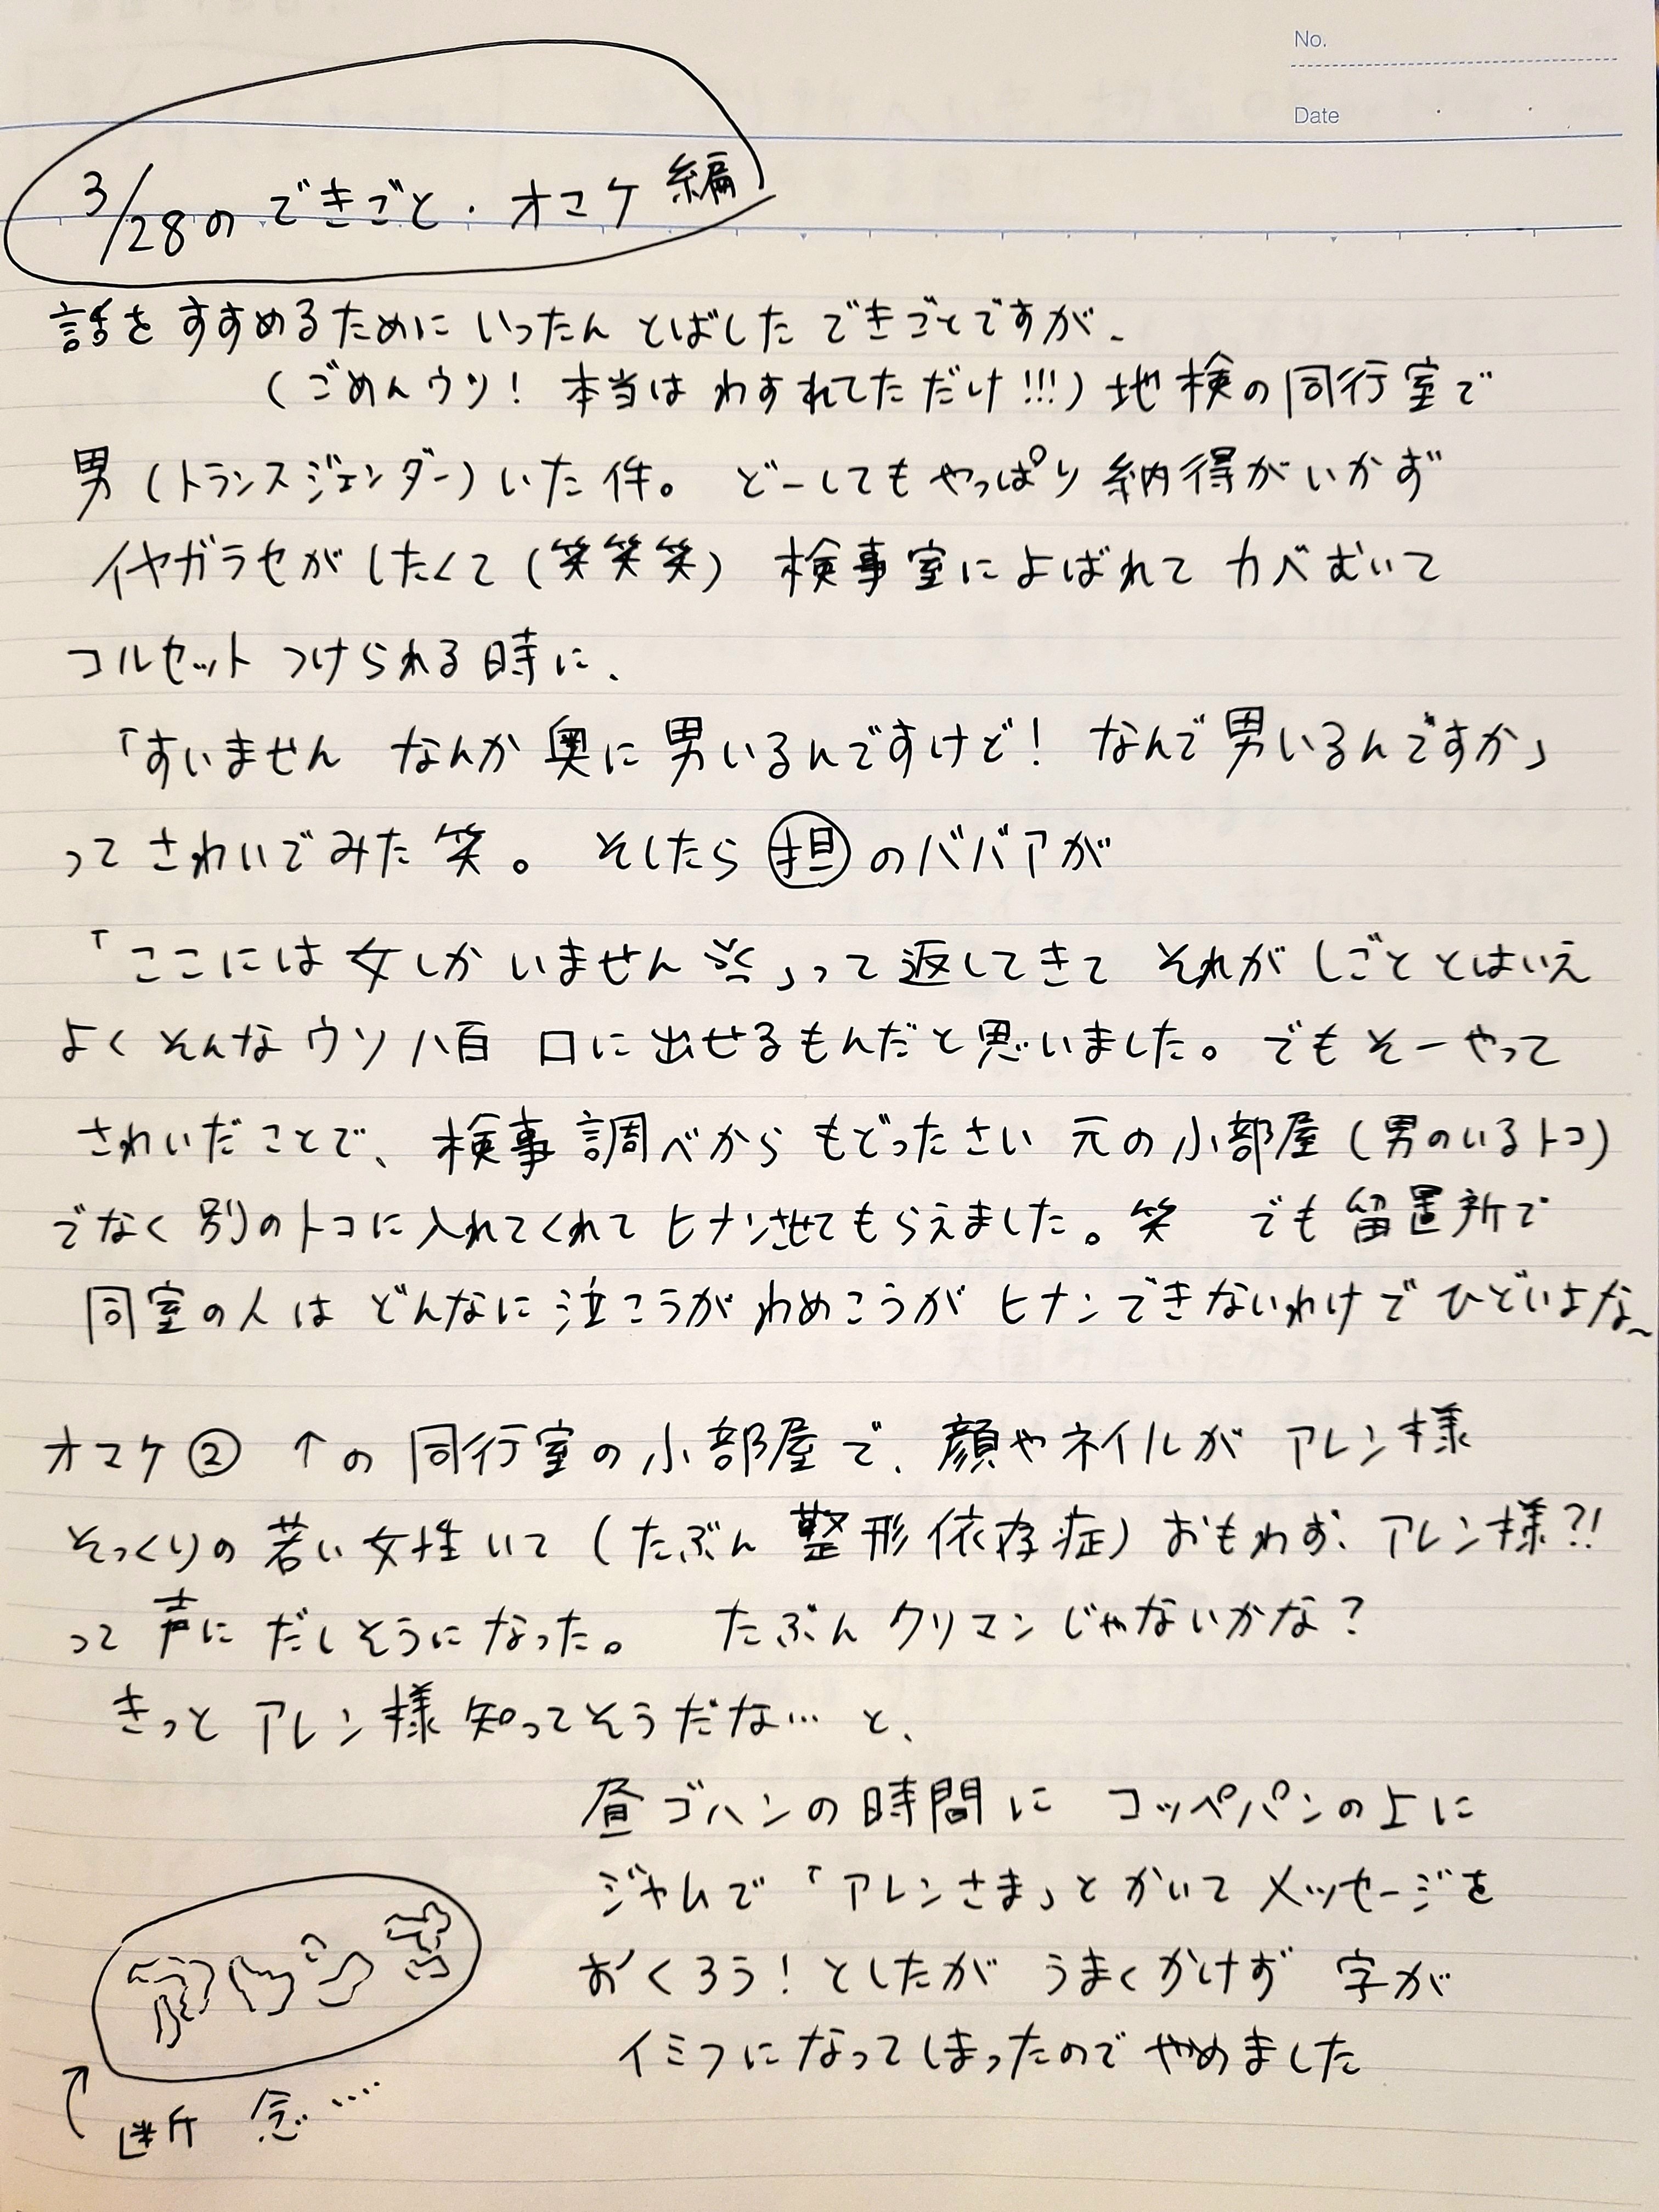 No.
Date
3/28のできごと・オマケ編
話をすすめるためにいったんとばしたできごとですが、
(ごめんウソ! 本当はわすれてただけ!!!)地検の同行室で
男(トランスジェンダー)いた件。 どーしてもやっぱり納得がいかず
イヤガラセがしたくて(笑笑笑) 検事室によばれてカベむいて
コルセットつけられる時に、
「すいません なんか奥に男いるんですけど! なんで男いるんですか」
ってさわいでみた笑。 そしたら担のババアが
「ここには女しかいません」って返してきて それがしごととはいえ
よくそんなウソ八百 口に出せるもんだと思いました。でもそーやって
さわいだことで、検事調べからもどったさい 元の小部屋(男のいるトコ)
でなく別のトコに入れてくれてヒナンさせてもらえました。笑 でも留置所で
同室の人はどんなに泣こうがわめこうがヒナンできないわけでひどいよな~
オマケ② ↑の同行室の小部屋で、顔やネイルがアレン様
そっくりの若い女性いて(たぶん整形依存症)おもわず、アレン様?!
って声にだしそうになった。 たぶんクリマンじゃないかな?
きっとアレン様知ってそうだな…と、
昼ゴハンの時間に コッペパンの上に
ジャムで「アレンさま」とかいてメッセージを
おくろう!としたが うまくかけず 字が
イミフになってしまったのでやめました
断念……